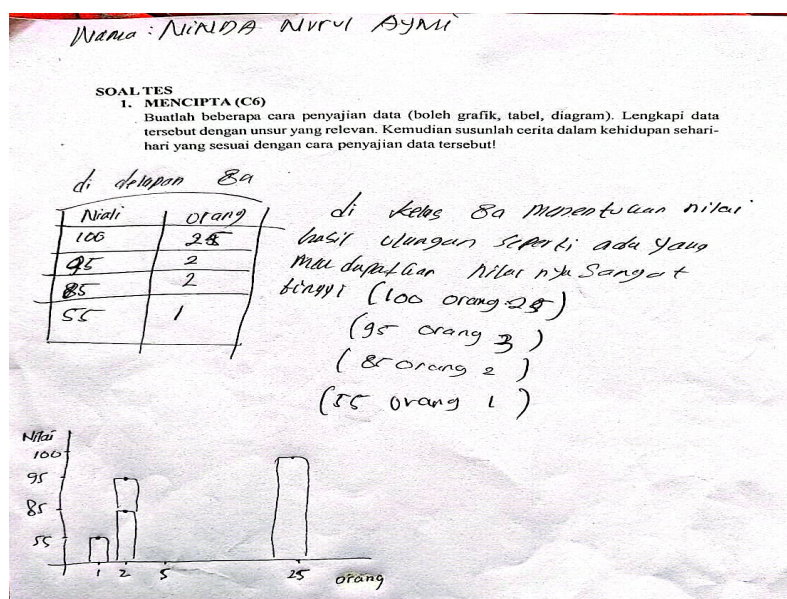 Nama : NINDA NUrUl AyMi
SOAL TES
1. MENCIPTA (C6)
Buatlah beberapa cara penyajian data (boleh grafik, tabel, diagram). Lengkapi data
tersebut dengan unsur yang relevan. Kemudian susunlah cerita dalam kehidupan sehari-
hari yang sesuai dengan cara penyajian data tersebut!
di delapan 8a
Niali orang
100 25
95 2
85 2
55 1
di kelas 8a menentukan nilai
hasil ulangan seperti ada yang
mendapatkan nilai nya Sangat
tinggi (100 orang 25)
(95 orang 3)
(85 orang 2)
(55 orang 1)
Nilai
100
95
85
55
1 2 5 25 orang